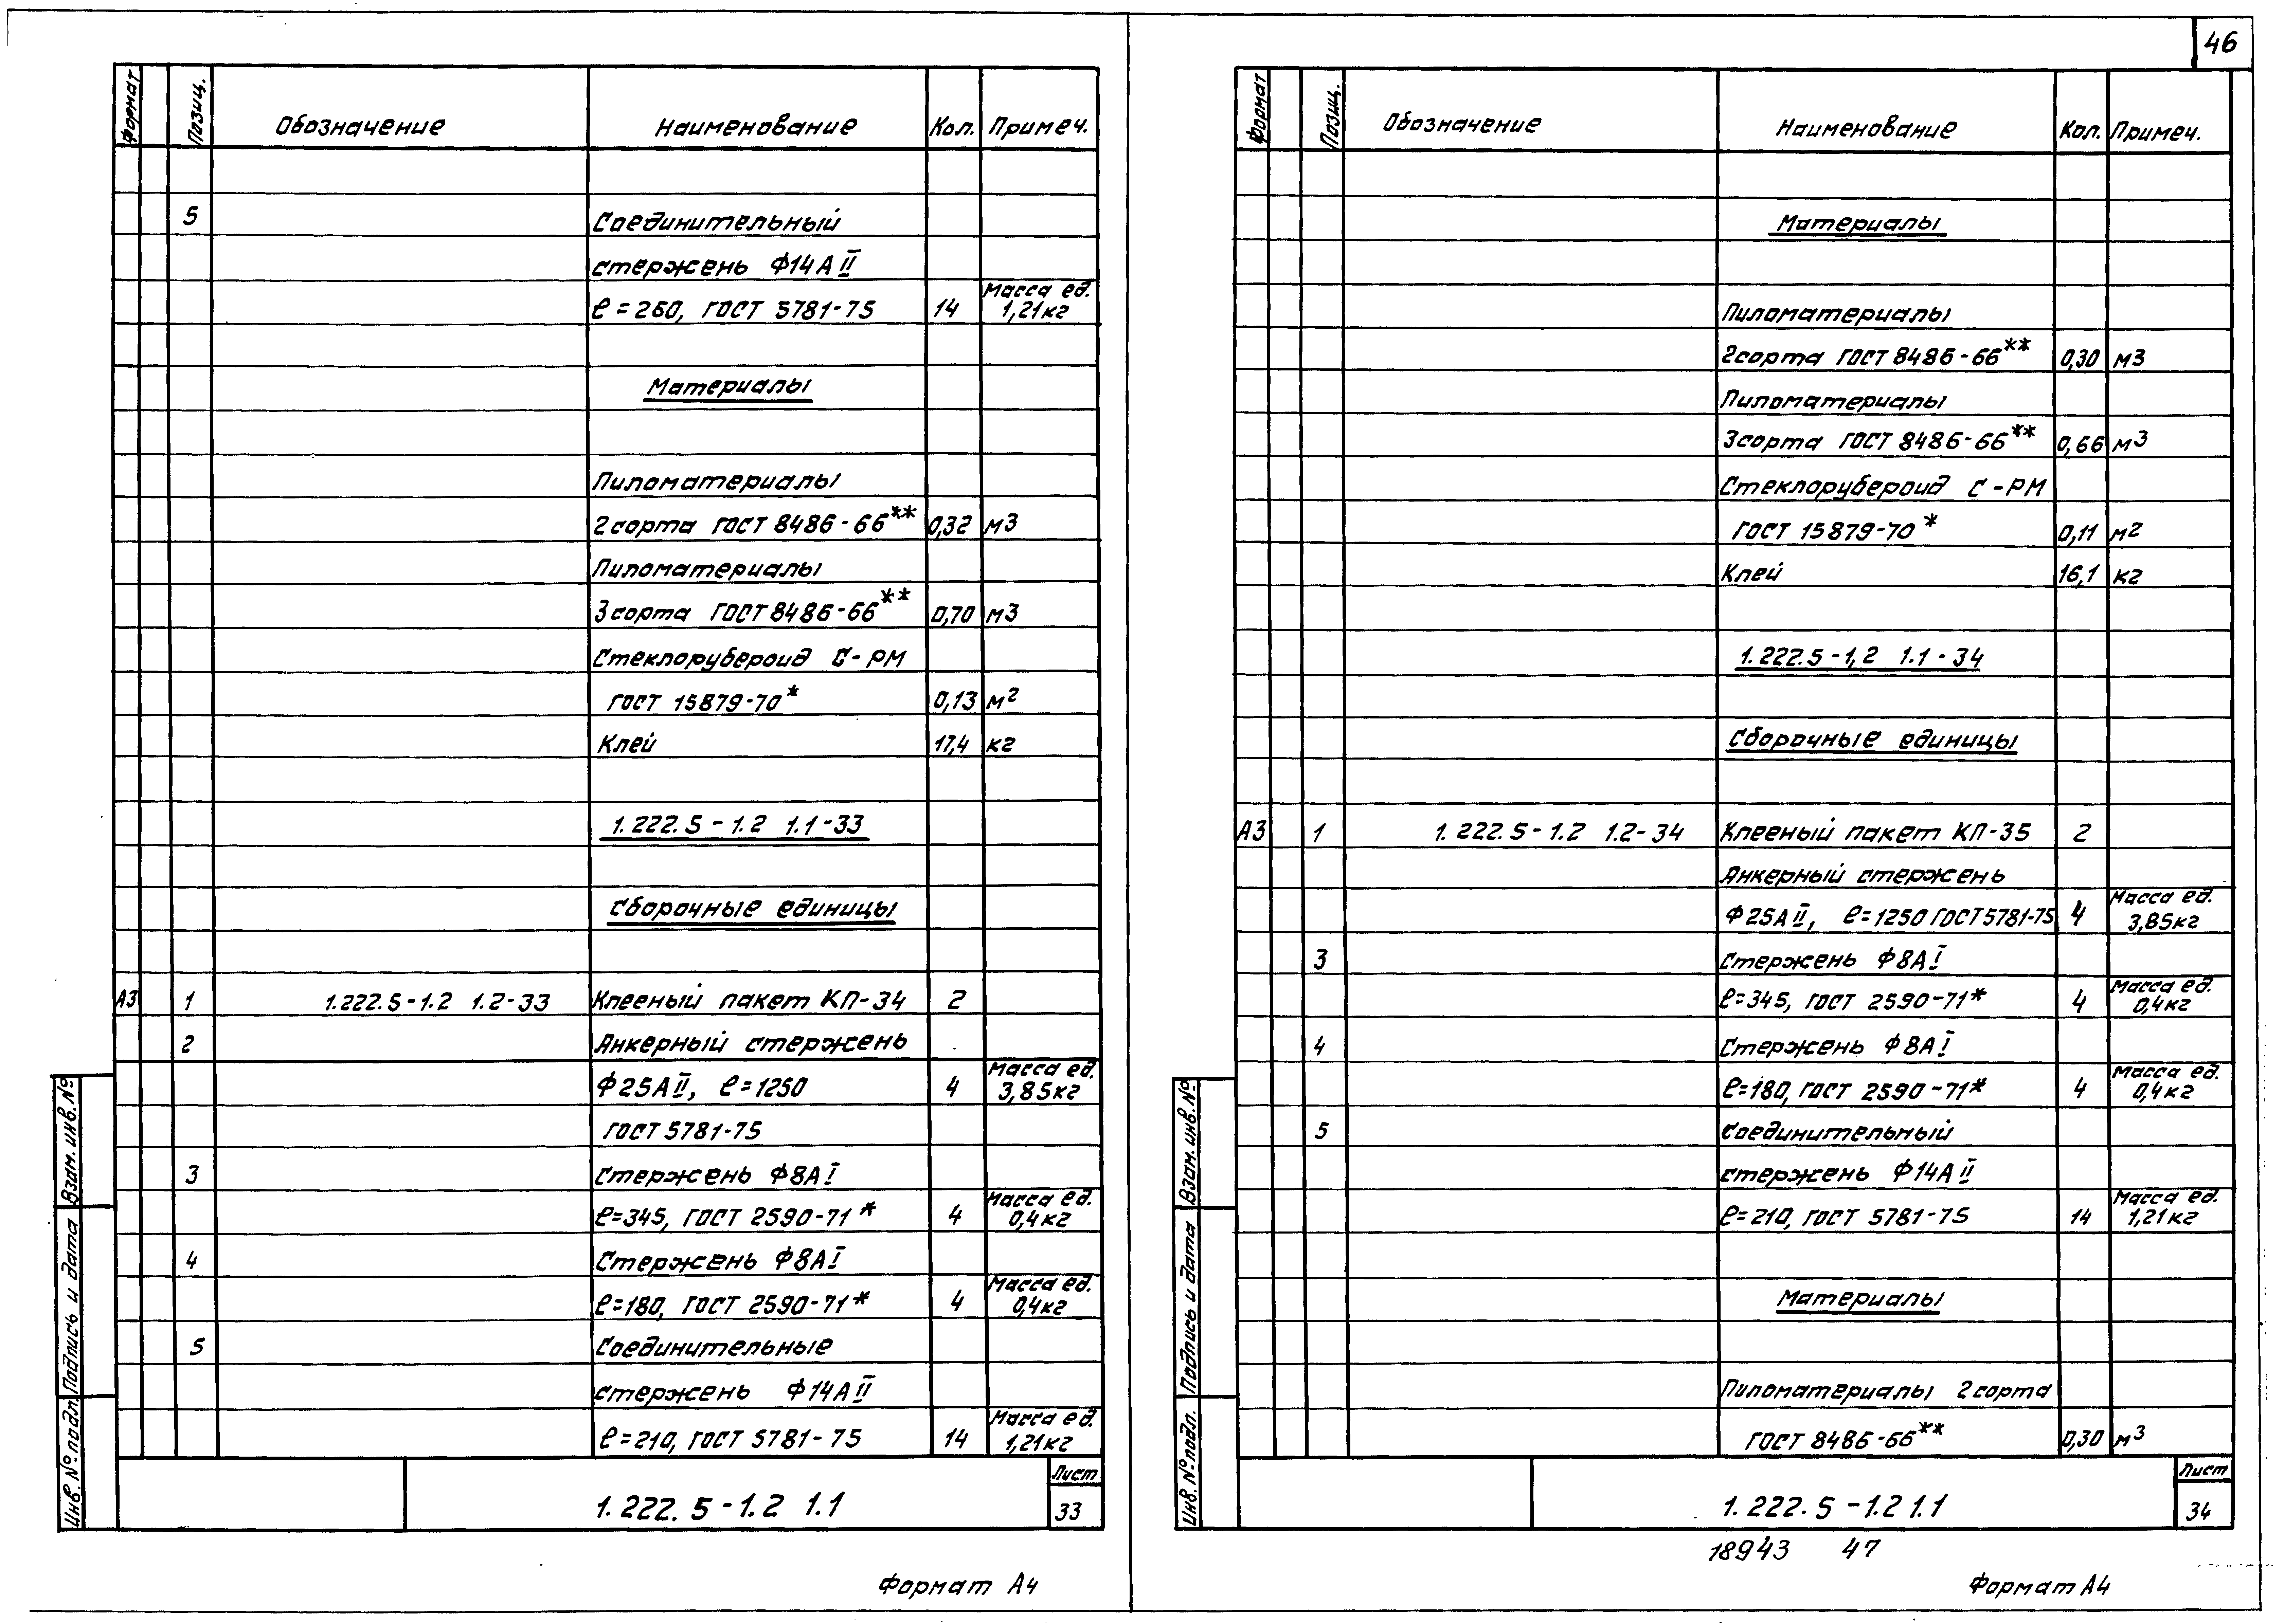 46
Формат Позиц. Обозначение Наименование Кол. Примеч.
5 Соединительный
стержень Ф14АII
ℓ=260, ГОСТ 5781-75 14 Масса ед. 1,21кг
Материалы
Пиломатериалы
2сорта ГОСТ 8486-66** 0,32 м3
Пиломатериалы
3сорта ГОСТ 8486-66** 0,70 м3
Стеклорубероид С-РМ
ГОСТ 15879-70* 0,13 м2
Клей 17,4 кг
1.222.5-1.2 1.1-33
Сборочные единицы
А3 1 1.222.5-1.2 1.2-33 Клееный пакет КП-34 2
2 Анкерный стержень
Ф25АII, ℓ=1250 4 Масса ед. 3,85кг
ГОСТ 5781-75
3 Стержень Ф8АI
ℓ=345, ГОСТ 2590-71* 4 Масса ед. 0,4кг
4 Стержень Ф8АI
ℓ=180, ГОСТ 2590-71* 4 Масса ед. 0,4кг
5 Соединительные
стержень Ф14АII
ℓ=210, ГОСТ 5781-75 14 Масса ед. 1,21кг
Взам. инв. №
Подпись и дата
Инв. № подл.
1.222.5-1.2 1.1
Лист
33
Формат А4
Формат Позиц. Обозначение Наименование Кол. Примеч.
Материалы
Пиломатериалы
2сорта ГОСТ 8486-66** 0,30 м3
Пиломатериалы
3сорта ГОСТ 8486-66** 0,66 м3
Стеклорубероид С-РМ
ГОСТ 15879-70* 0,11 м2
Клей 16,1 кг
1.222.5-1,2 1.1-34
Сборочные единицы
А3 1 1.222.5-1.2 1.2-34 Клееный пакет КП-35 2
Анкерный стержень
Ф25АII, ℓ=1250 ГОСТ5781-75 4 Масса ед. 3,85кг
3 Стержень Ф8АI
ℓ=345, ГОСТ 2590-71* 4 Масса ед. 0,4кг
4 Стержень Ф8АI
ℓ=180, ГОСТ 2590-71* 4 Масса ед. 0,4кг
5 Соединительный
стержень Ф14АII
ℓ=210, ГОСТ 5781-75 14 Масса ед. 1,21кг
Материалы
Пиломатериалы 2сорта
ГОСТ 8486-66** 0,30 м3
Взам. инв. №
Подпись и дата
Инв. № подл.
1.222.5-1.2 1.1
Лист
34
18943 47
Формат А4